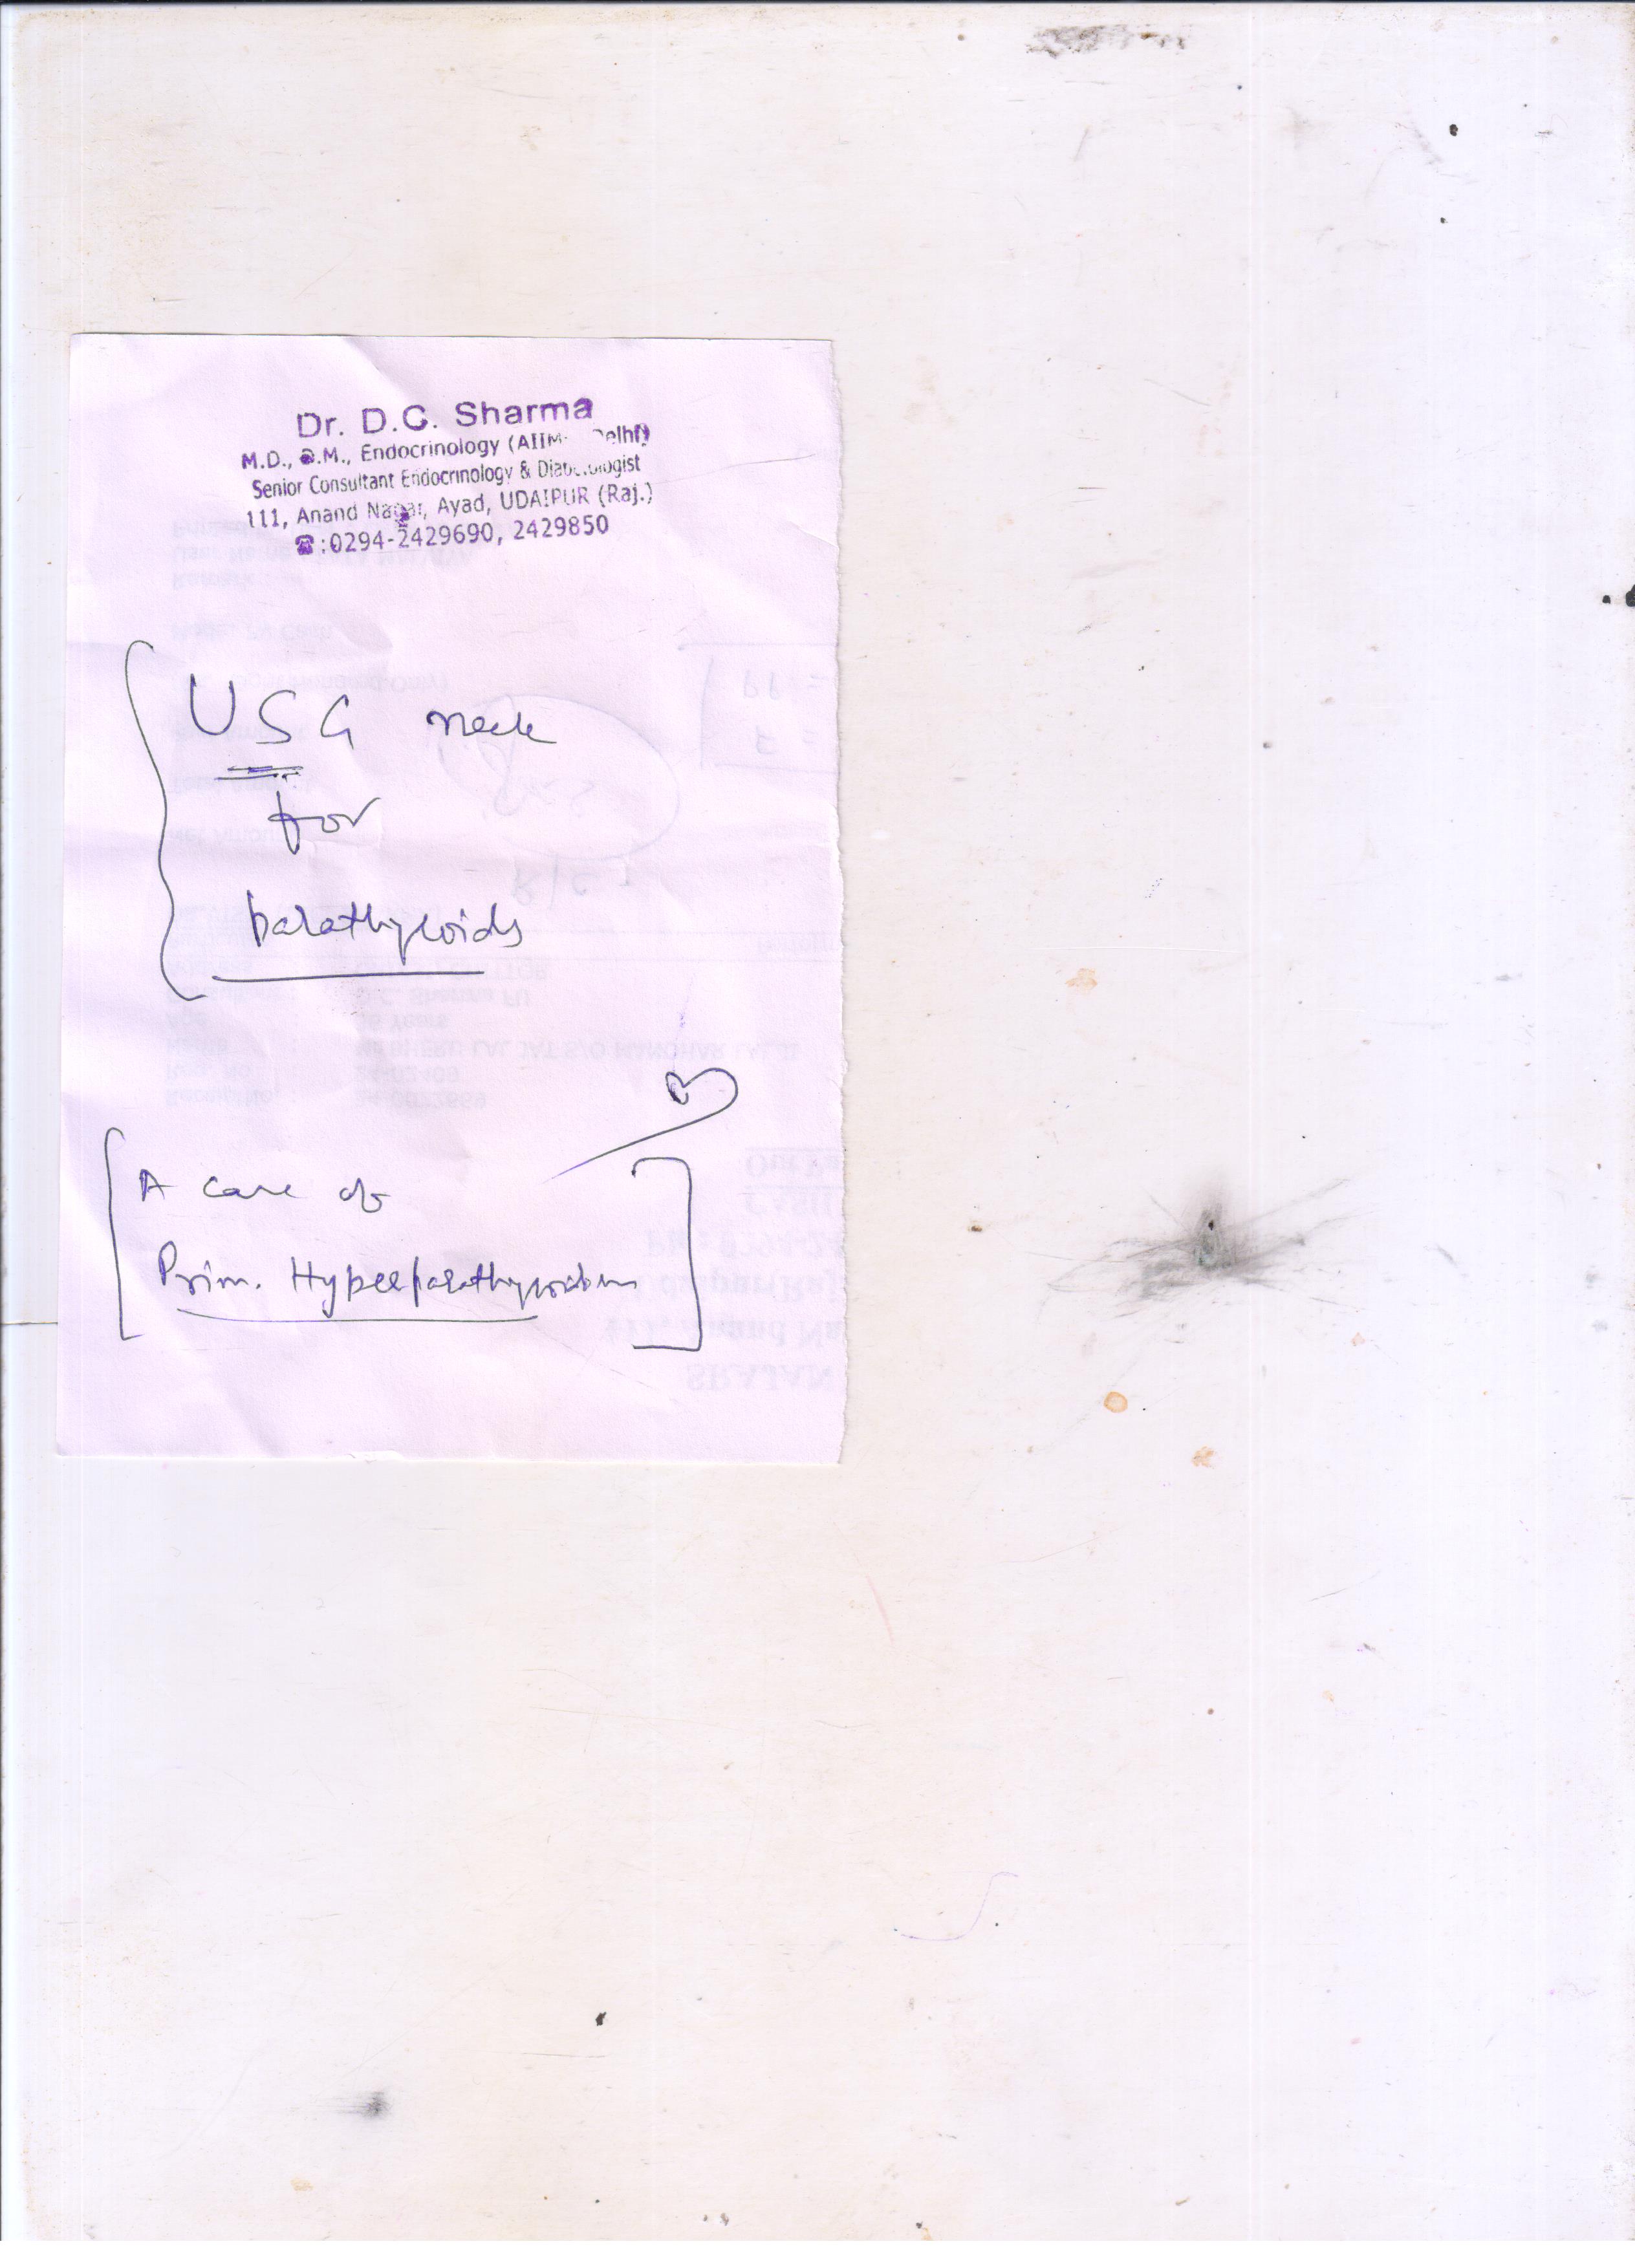 Dr. D.C. Sharma
M.D., D.M., Endocrinology (AIIMS Delhi)
Senior Consultant Endocrinology & Diabetologist
111, Anand Nagar, Ayad, UDAIPUR (Raj.)
☎:0294-2429690, 2429850
USG neck
for
parathyroids
A case of
Prim. Hyperparathyroidism